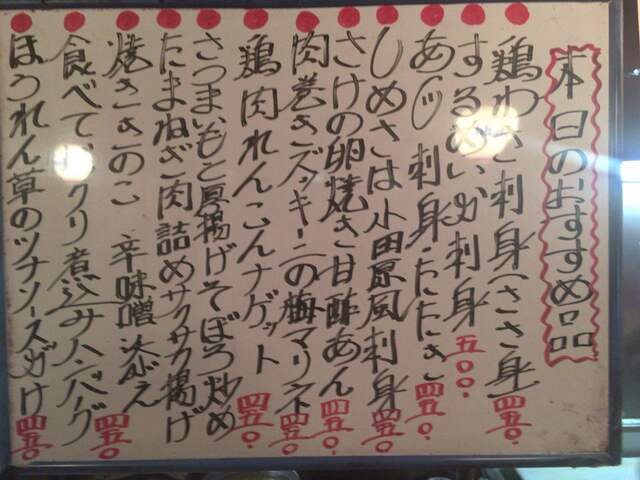 本日のおすすめ品
鶏わさ刺身(ささ身) 四五〇.
するめいか刺身 五〇〇.
あじ刺身・たたき 四五〇.
しめさば小田原風刺身 四五〇.
さけの卵焼き甘酢あん 四五〇.
肉巻きズッキーニの梅マリネ 四五〇.
鶏肉れんこんナゲット 四五〇.
さつまいもと厚揚げそぼろ炒め
たまねぎ肉詰めサクサク揚げ
焼ききのこ 辛味噌添え 四五〇.
食べてビックリ煮込みハンバーグ
ほうれん草のツナソースがけ 四五〇.